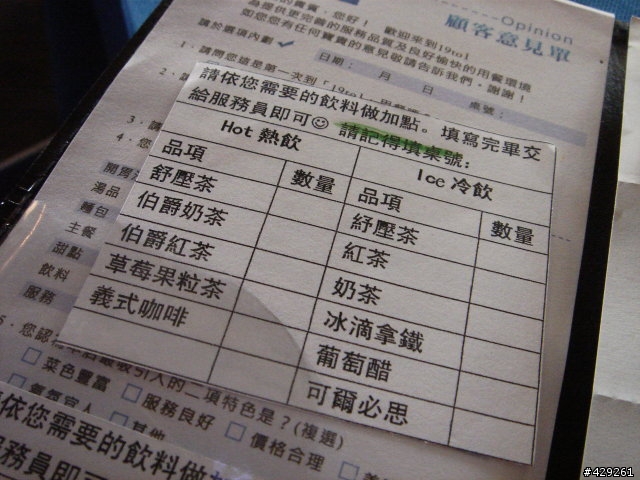 Opinion
顧客意見單
的貴賓,您好! 歡迎來到19to1
為提供更完善的服務品質及良好愉快的用餐環境
如您您有任何寶貴的意見敬請告訴我們,謝謝!
請於選項內劃✓
日期: 月 日 桌號:
1、請問您這是第一次到「19to1
2、
3、請
4、您
請依您需要的飲料做加點。填寫完畢交
給服務員即可☺ 請記得填桌號:
Hot 熱飲 Ice 冷飲
品項 數量 品項 數量
舒壓茶 紓壓茶
伯爵奶茶 紅茶
伯爵紅茶 奶茶
草莓果粒茶 冰滴拿鐵
義式咖啡 葡萄醋
可爾必思
湯品
麵包
主餐
甜點
飲料
服務
5、您認為本店最吸引人的二項特色是?(複選)
□菜色豐富 □服務良好 □價格合理
□氣氛宜人 □其他
依您需要的飲料做加
服務員即可
#429261